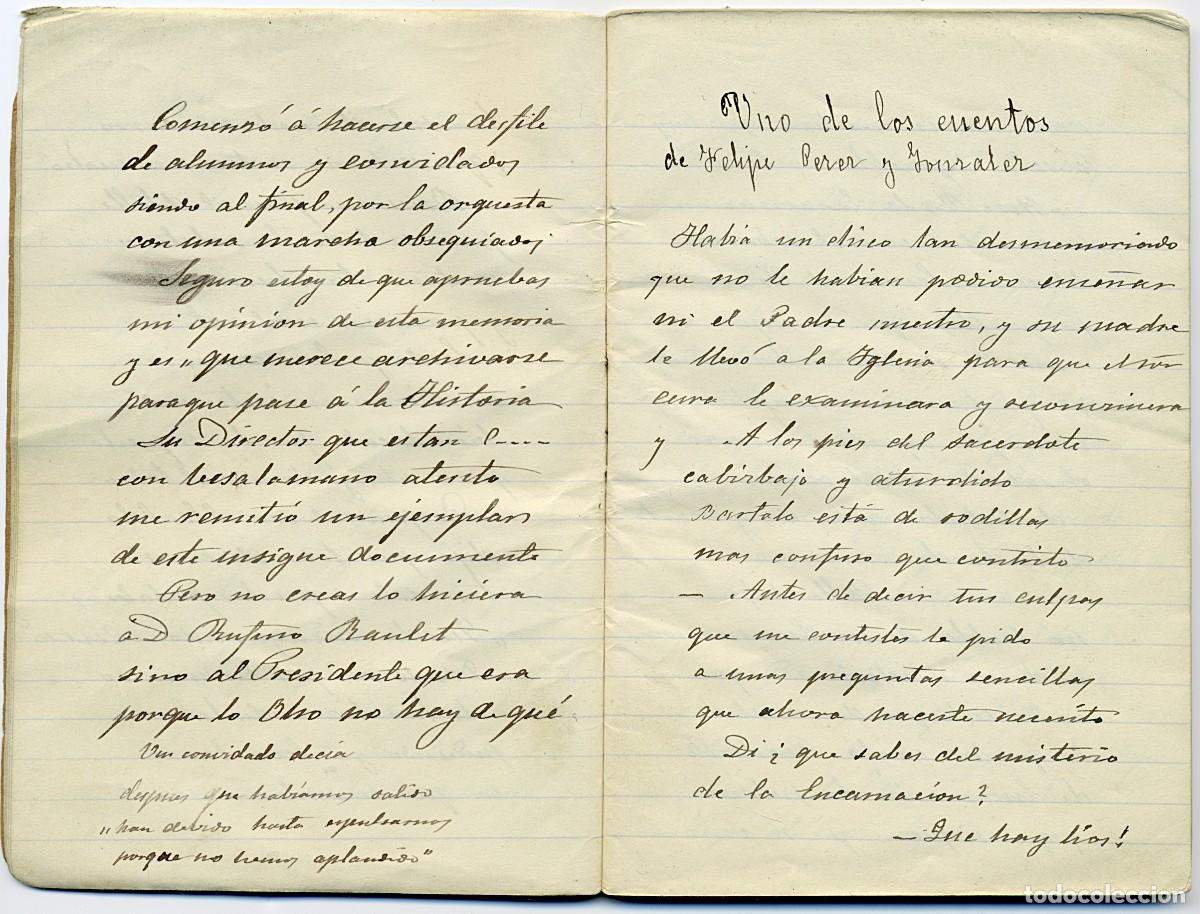 Comenzó á hacerse el desfile
de alumnos y convidados
siendo al final, por la orquesta
con una marcha obsequiados;
Seguro estoy de que apruebas
mi opinion de esta memoria
y es "que merece archivarse
para que pase á la Historia
Su Director que estan l----
con besalamano atento
me remitió un ejemplar
de este insigne documente
Pero no creas lo hiciera
a D Rufino
sino al Presidente que era
porque lo Otro no hay de qué
Un convidado decia
despues que habíamos salido
"han devido hasta espulsarnos
porque no hemos aplaudido"
Uno de los cuentos
de Felipe Perez y Gonzalez
Había un chico tan desmemoriado
que no le habian podido enseñar
ni el Padre nuestro, y su madre
le llevó a la Iglesia para que el Sr
cura le examinara y reconviniera
y A los pies del sacerdote
cabizbajo y aturdido
Bartolo está de rodillas
mas confuso que contrito
— Antes de decir tus culpas
que me contestes te pido
a unas preguntas sencillas
que ahora hacerte necesito
Di ¿ que sabes del misterio
de la Encarnacion?
— Que hay lios!
todocoleccion